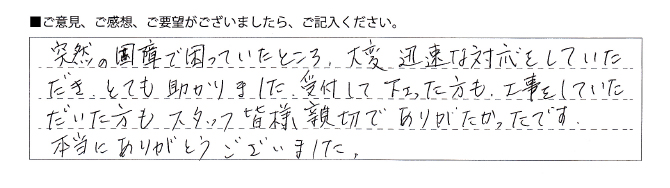 ■ご意見、ご感想、ご要望がございましたら、ご記入ください。
突然の故障で困っていたところ、大変 迅速な対応をしていた
だき、とても助かりました。受付して下さった方も、工事をしていた
だいた方も スタッフ皆様、親切で ありがたかったです。
本当に ありがとう ございました。